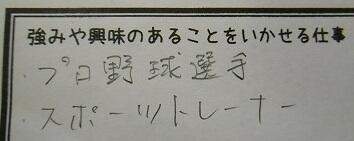 強みや興味のあることをいかせる仕事
・プロ野球選手
・スポーツトレーナー